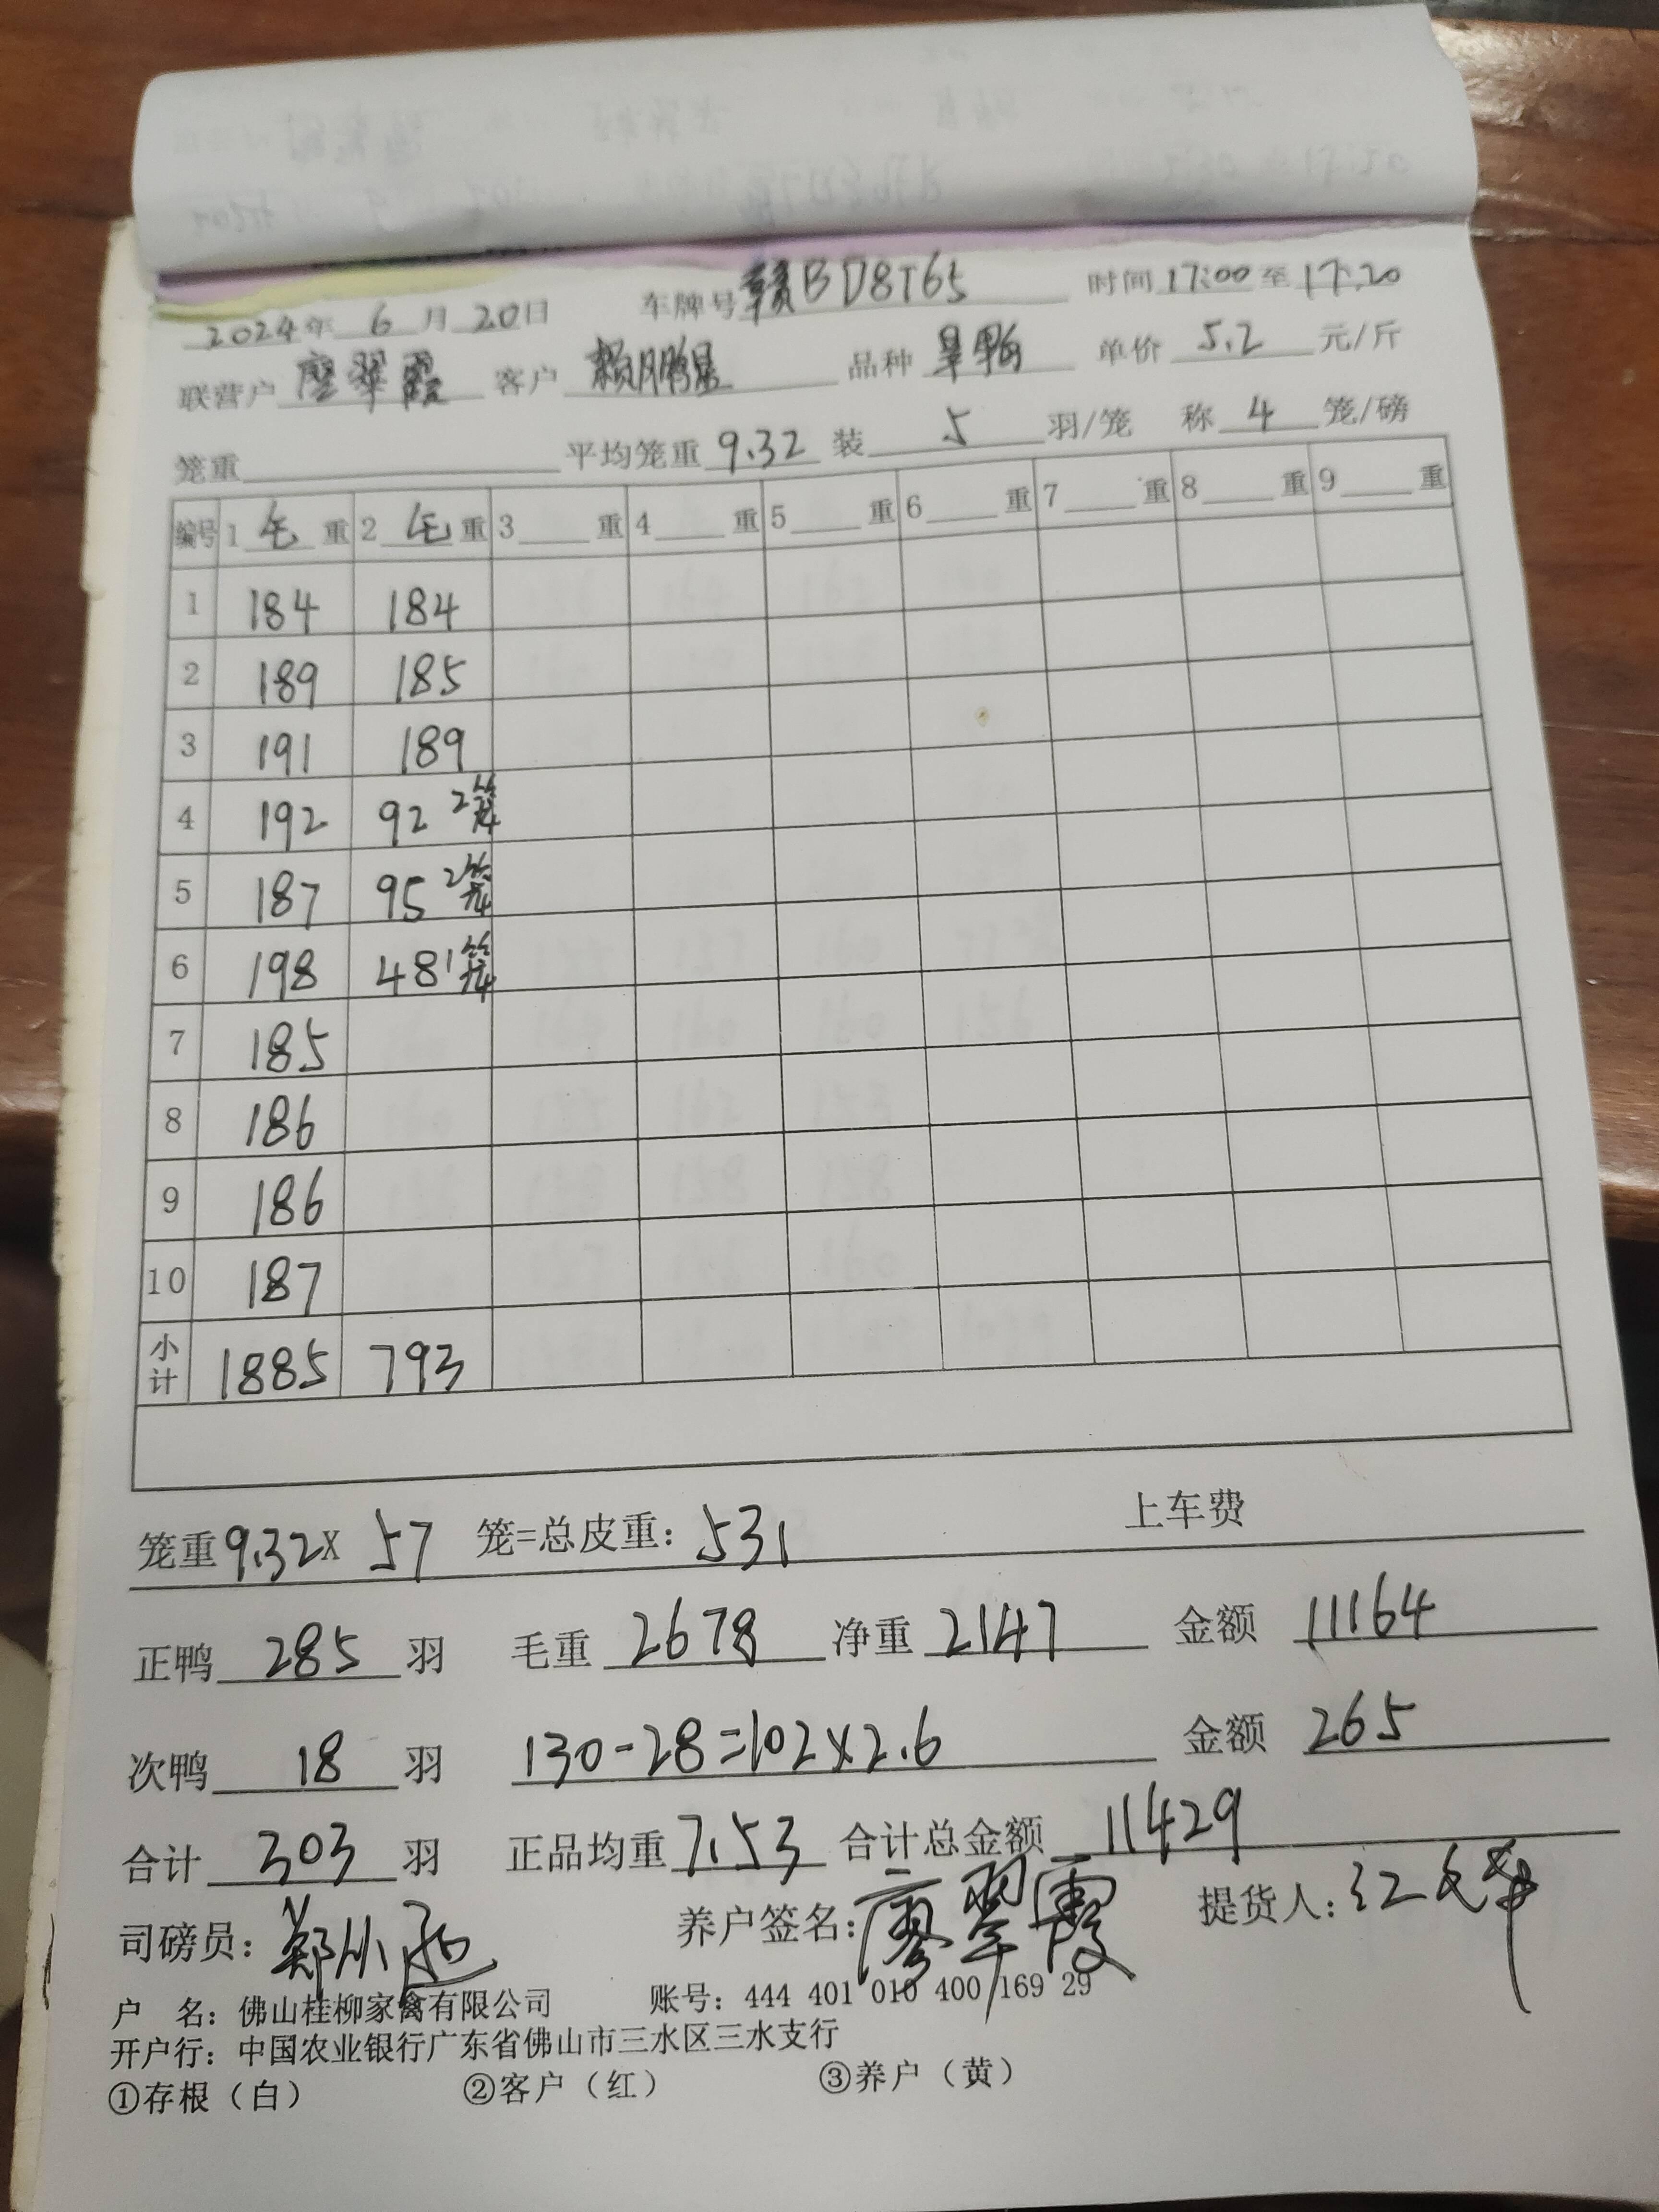 2024年 6 月 20日 车牌号 赣BD8T65 时间 17:00 至 17:20
联营户 廖翠霞 客户 赖鹏 品种 单价 5.2 元/斤
笼重 平均笼重 9.32 装 5 羽/笼 称 4 笼/磅
编号 1 毛 重 2 毛 重 3 重 4 重 5 重 6 重 7 重 8 重 9 重
1 184 184
2 189 185
3 191 189
4 192 92 2笼
5 187 95 2笼
6 198 48 1笼
7 185
8 186
9 186
10 187
小计 1885 793
笼重 9.32 X 57 笼=总皮重: 531 上车费
正鸭 285 羽 毛重 2678 净重 2147 金额 11164
次鸭 18 羽 130-28=102×2.6 金额 265
合计 303 羽 正品均重 7.53 合计总金额 11429
司磅员: 郑小 养户签名: 廖翠霞 提货人:
户 名: 佛山桂柳家禽有限公司 账号: 444 401 010 400 169 29
开户行: 中国农业银行广东省佛山市三水区三水支行
①存根（白） ②客户（红） ③养户（黄）